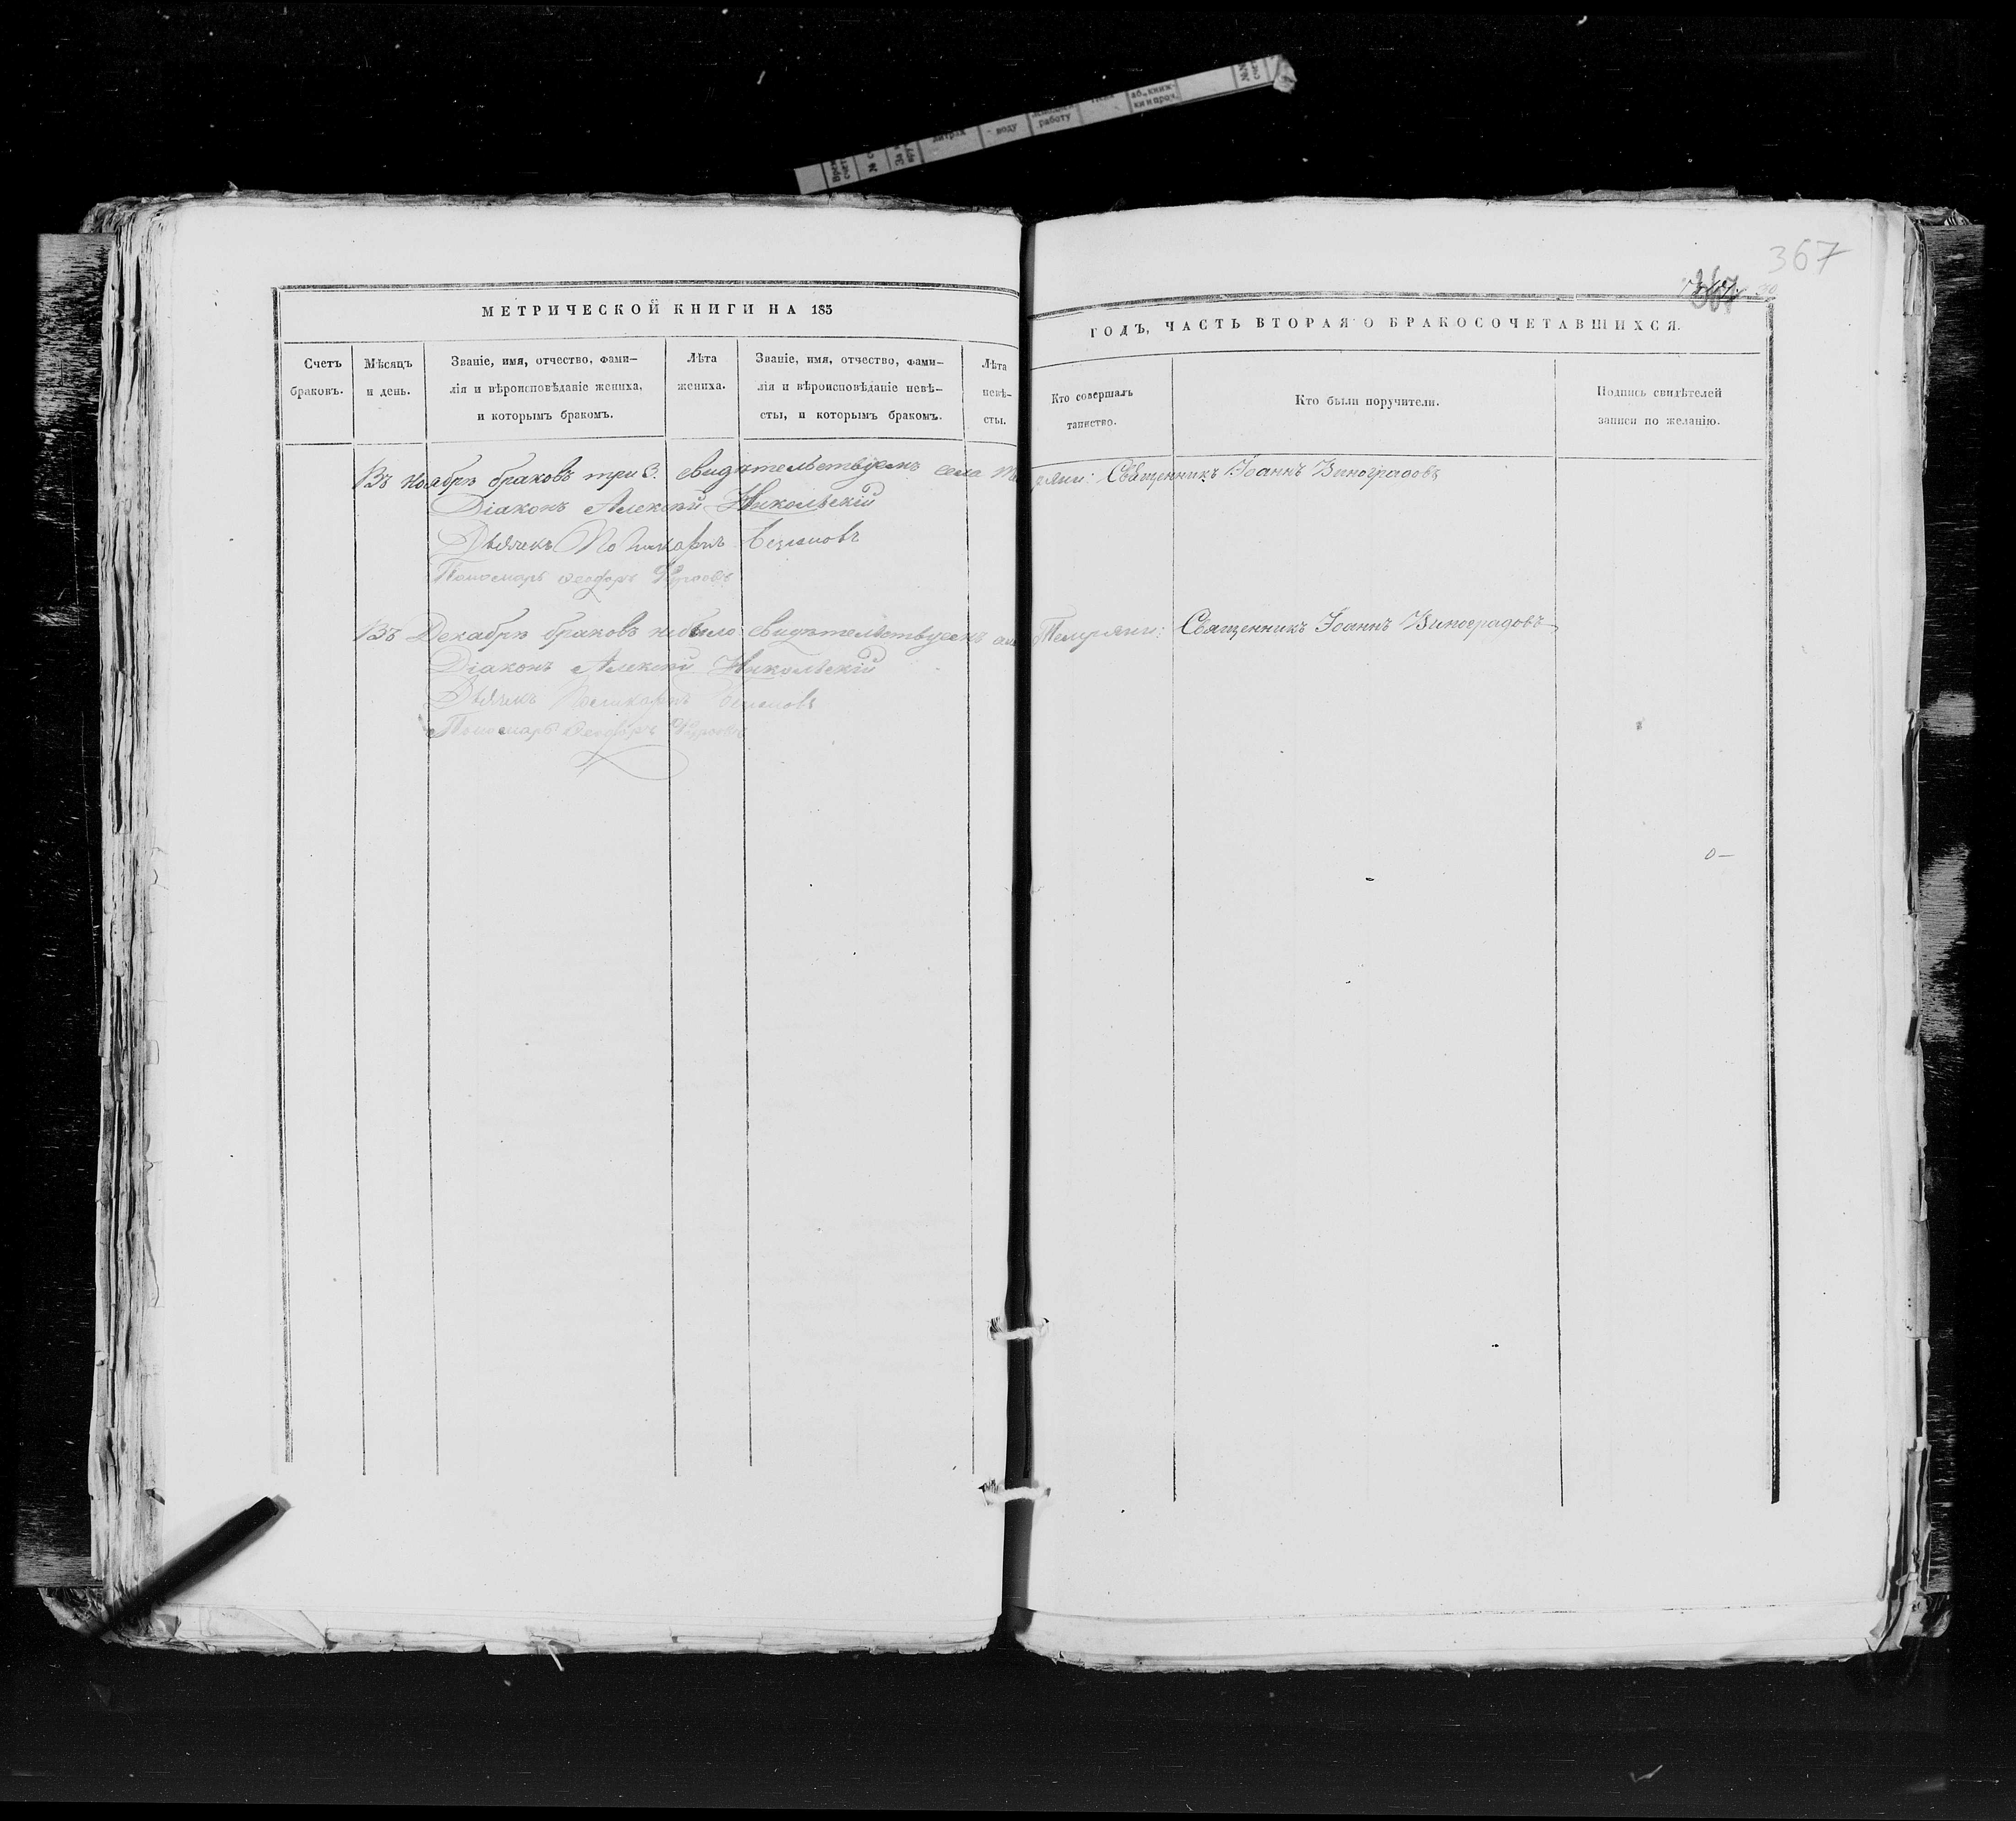 367
367
МЕТРИЧЕСКОЙ КНИГИ НА 185
ГОДЪ, ЧАСТЬ ВТОРАЯ О БРАКОСОЧЕТАВШИХСЯ.
Счетъ браковъ.
Мѣсяцъ и день.
Званіе, имя, отчество, фами-
лія и вѣроисповѣданіе жениха,
и которымъ бракомъ.
Лѣта жениха.
Званіе, имя, отчество, фами-
лія и вѣроисповѣданіе невѣ-
сты, и которымъ бракомъ.
Лѣта невѣ-
сты.
Кто совершалъ
таинство.
Кто были поручители.
Подпись свидѣтелей
записи по желанію.
Въ ноябрѣ браковъ три 3. свидѣтельствуемъ села Священникъ Іоаннъ Виноградовъ
Діаконъ Алексѣй Никольскій
Дьячекъ Поликарпъ
Пономарь Феодоръ
Въ Декабрѣ браковъ небыло свидѣтельствуемъ Священникъ Іоаннъ Виноградовъ
Діаконъ Алексѣй Никольскій
Дьячекъ Поликарпъ
Пономарь Феодоръ
работу
воду